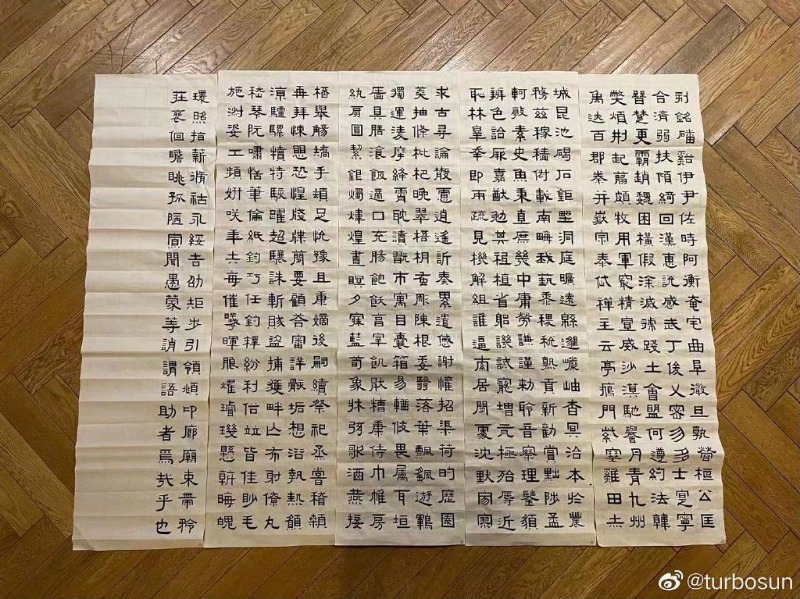 刻銘磻谿伊尹佐時阿衡奄宅曲阜微旦孰營桓公匡
合濟弱扶傾綺回漢惠說感武丁俊乂密勿多士寔寧
晉楚更霸趙魏困橫假途滅虢踐土會盟何遵約法韓
弊煩刑起翦頗牧用軍最精宣威沙漠馳譽丹青九州
禹迹百郡秦并嶽宗泰岱禪主云亭雁門紫塞雞田赤
城昆池碣石鉅野洞庭曠遠緜邈巖岫杳冥治本於農
務茲稼穡俶載南畝我藝黍稷稅熟貢新勸賞黜陟孟
軻敦素史魚秉直庶幾中庸勞謙謹勅聆音察理鑒貌
辨色貽厥嘉猷勉其祗植省躬譏誡寵增亢極殆辱近
恥林皋幸即兩疏見機解組誰逼索居閒處沈默寂寥
求古尋論散慮逍遙欣奏累遣慼謝懽招渠荷的歷園
莽抽條枇杷晚翠梧桐早彫陳根委翳落葉飄颻遊鵾
獨運凌摩絳霄耽讀翫市寓目囊箱易輶攸畏屬耳垣
牆具膳飡飯適口充腸飽飫烹宰飢厭糟糠侍巾帷房
紈扇圓潔銀燭煒煌晝瞑夕寐藍筍象牀弦歌酒讌接
桮舉觴矯手頓足悅豫且康嫡後嗣續祭祀烝嘗稽顙
再拜悚懼恐惶牋牒簡要顧答審詳骸垢想浴執熱願
涼驢騾犢特駭躍超驤誅斬賊盜捕獲叛亡布射僚丸
嵇琴阮嘯恬筆倫紙鈞巧任釣釋紛利俗竝皆佳妙毛
施淑姿工顰妍笑年矢每催曦暉朗耀璿璣懸斡晦魄
環照指薪修祜永綏吉劭矩步引領俯仰廊廟束帶矜
莊裴佪瞻眺孤陋寡聞愚蒙等誚謂語助者焉哉乎也
@turbosun